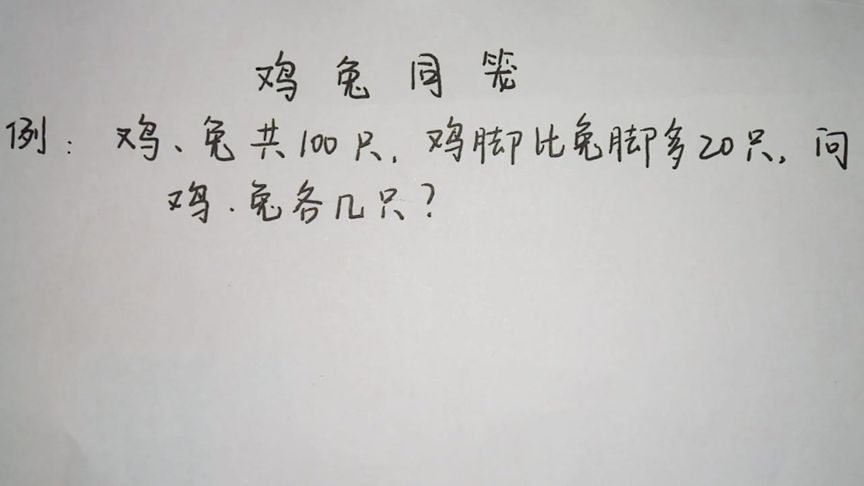 鸡兔同笼
例：鸡、兔共100只，鸡脚比兔脚多20只，问
鸡.兔各几只？